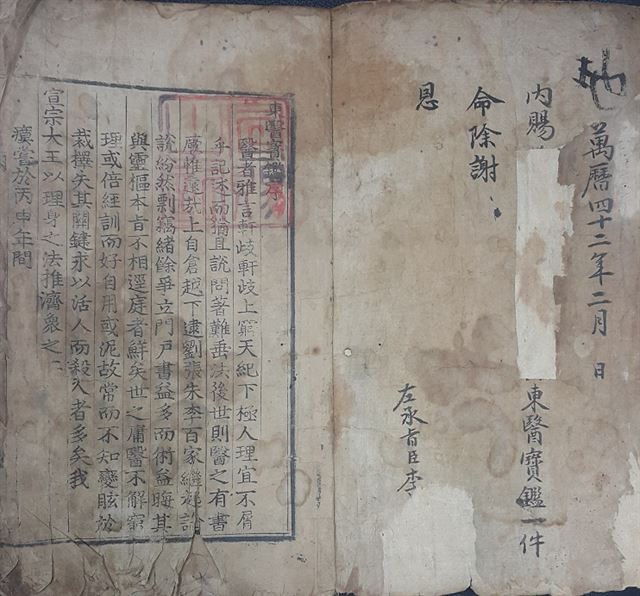 萬曆四十二年二月 日
內賜 東醫寶鑑一件
命除謝
恩
左承旨臣李
東醫寶鑑序
醫者雅言軒岐軒岐上窮天紀下極人理宜不屑
乎記述而猶且說問著難垂法後世則醫之有書
厥惟遠哉上自倉越下逮劉張朱李百家繼起論
說紛然剽竊緖餘爭立門戶書益多而術益晦其
與靈樞本旨不相逕庭者鮮矣世之庸醫不解窮
理或倍經訓而好自用或泥故常而不知變眩於
裁擇失其關鍵求以活人而殺人者多矣我
宣宗大王以理身之法推濟衆之
瘼嘗於丙申年間